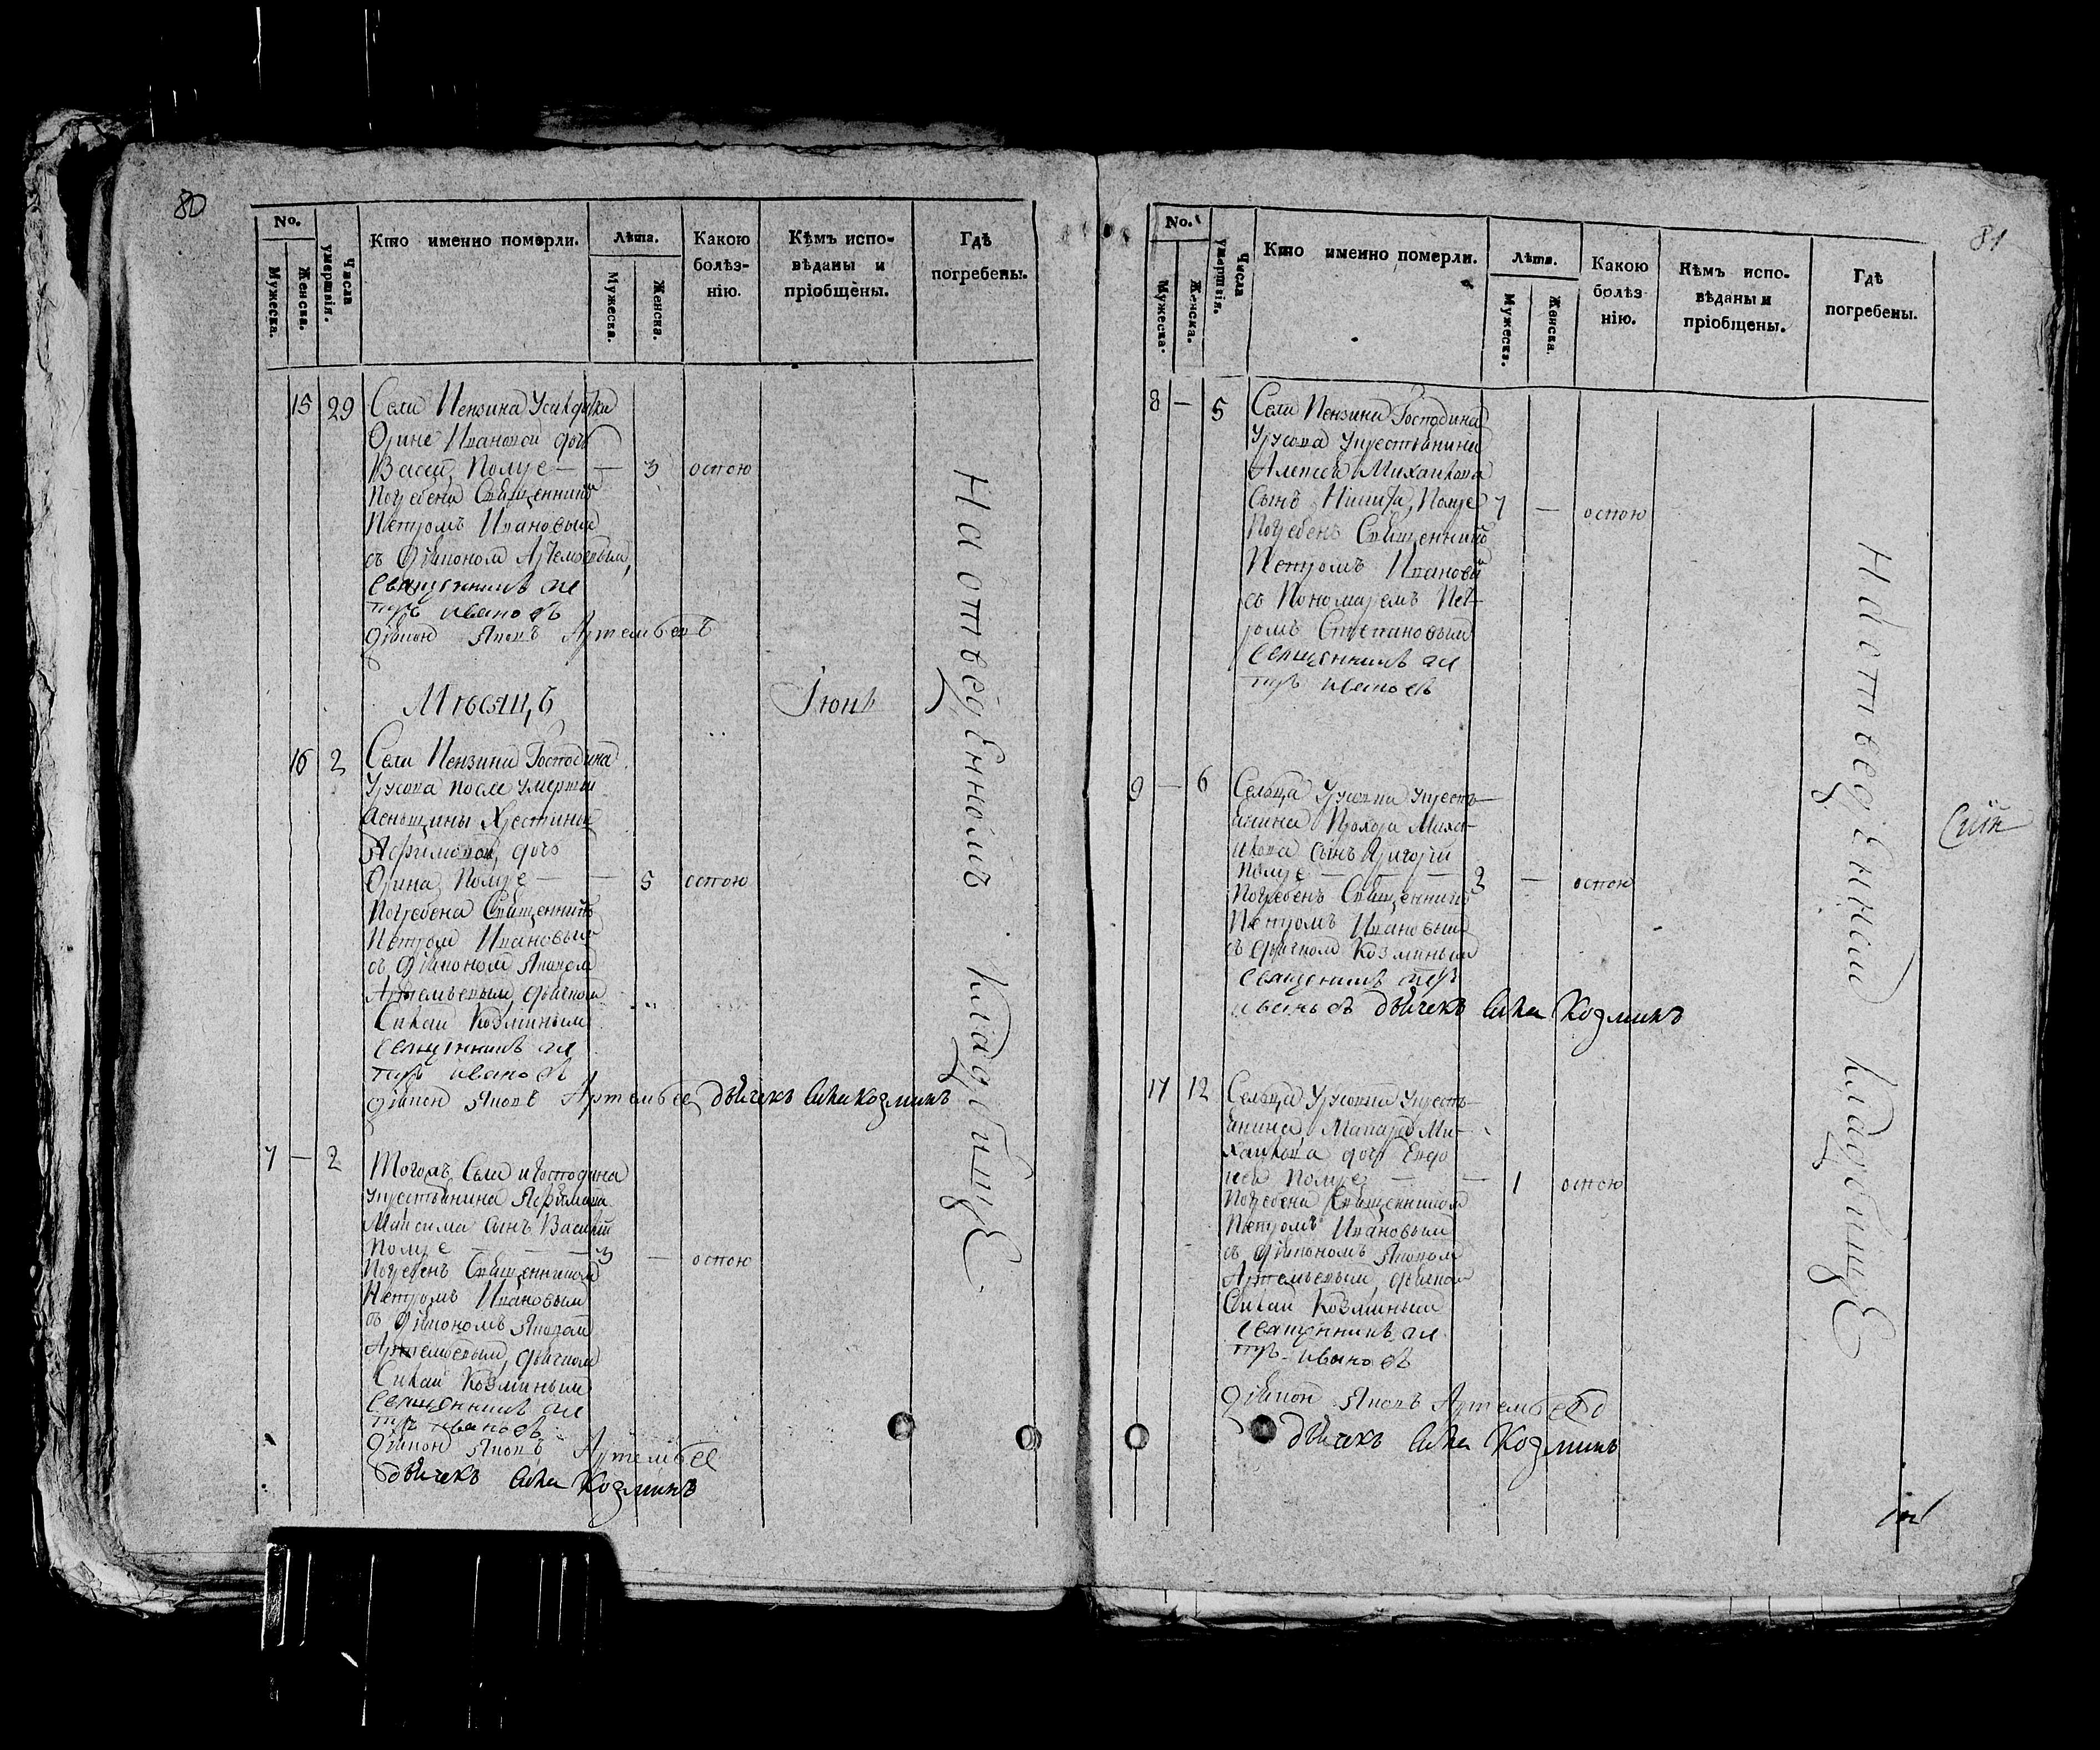 80
No.
Мужеска.
Женска.
Числа умершвія.
Кто именно померли.
Лѣта.
Мужеска.
Женска.
Какою болѣз-
нію.
Кѣмъ испо-
вѣданы и
пріобщены.
Гдѣ
погребены.
15 29 Села Пензина
Орине Ивановой дочь
— 3 оспою
Погребена Священник
Петромъ Ивановым
съ Диаконом Артемьевым,
Священникъ пе
тръ ивановъ
Диакон Яковъ Артемьевъ
Месяцъ Іюнь
16 2 Села Пензина Господина
Урусова после умершей
женщины Хрестины
Яфимовой дочь
Орина, — 5 оспою
Погребена Священникъ
Петром Ивановым
съ Диаконом Яковом
Артемьевым, дьячком
Силой Козминым
Священникъ пе
тръ ивановъ
Диакон Яковъ Артемьев дьячекъ Сила Козминъ
7 — 2 Тогожъ Села и Господина
крестьянина
Максима сынъ Василий
3 — оспою
Погребенъ Священником
Петромъ Ивановым
съ Диакономъ Яковом
Артемьевым, дьячком
Силой Козминым
Священникъ пе
тръ ивановъ
Диакон Яковъ Артемьев
дьячекъ Сила Козминъ
На отведенномъ кладбище.
81
No.
Мужеска.
Женска.
Числа умершвія.
Кто именно померли.
Лѣта.
Мужеска.
Женска.
Какою
болѣз-
нію.
Кѣмъ испо-
вѣданы и
пріобщены.
Гдѣ
погребены.
8 — 5 Села Пензина Господина
Урусова крестьянина
Алексея Михайлова
сынъ Никита, 7 — оспою
Погребенъ Священник
Петромъ Ивановы
съ Пономаремъ Пет-
ромъ Степановым
Священникъ пе
тръ ивановъ
9 — 6 Сельца Урусовки кресть-
янина Прохора Миха-
илова сынъ Григорий
3 — оспою
Погребенъ Священник
Петромъ Ивановым
съ дьячком Козминым
Священикъ петръ
ивановъ дьячекъ Сила Козминъ
17 12 Сельца Урусовки кресть-
янина, Макара Ми-
хайлова дочь Евдо
— 1 оспою
Погребена Священником
Петромъ Ивановым
съ Диакономъ Яковом
Артемьевым, дьячком
Силой Козминым
Священникъ пе
тръ ивановъ
Диакон Яковъ Артемьевъ
дьячекъ Сила Козминъ
На отведенном кладбище